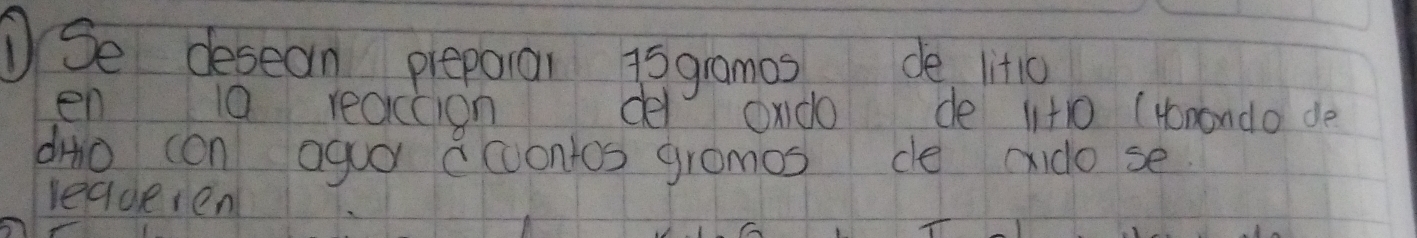 ① Se desean preparar 75gramos de litio
en la reaccion del oxido de litio (Monondo de
ditio con agua ¿cuantos gramos de oxido se.
requeren